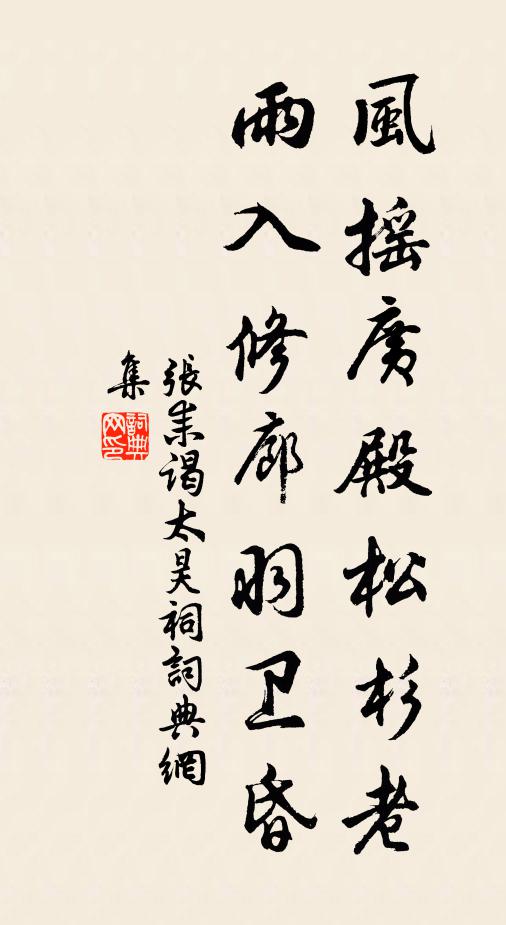 風搖廣殿松杉老
雨入修廊羽卫昏
張耒謁太昊祠詞典網
集
詞典
网印